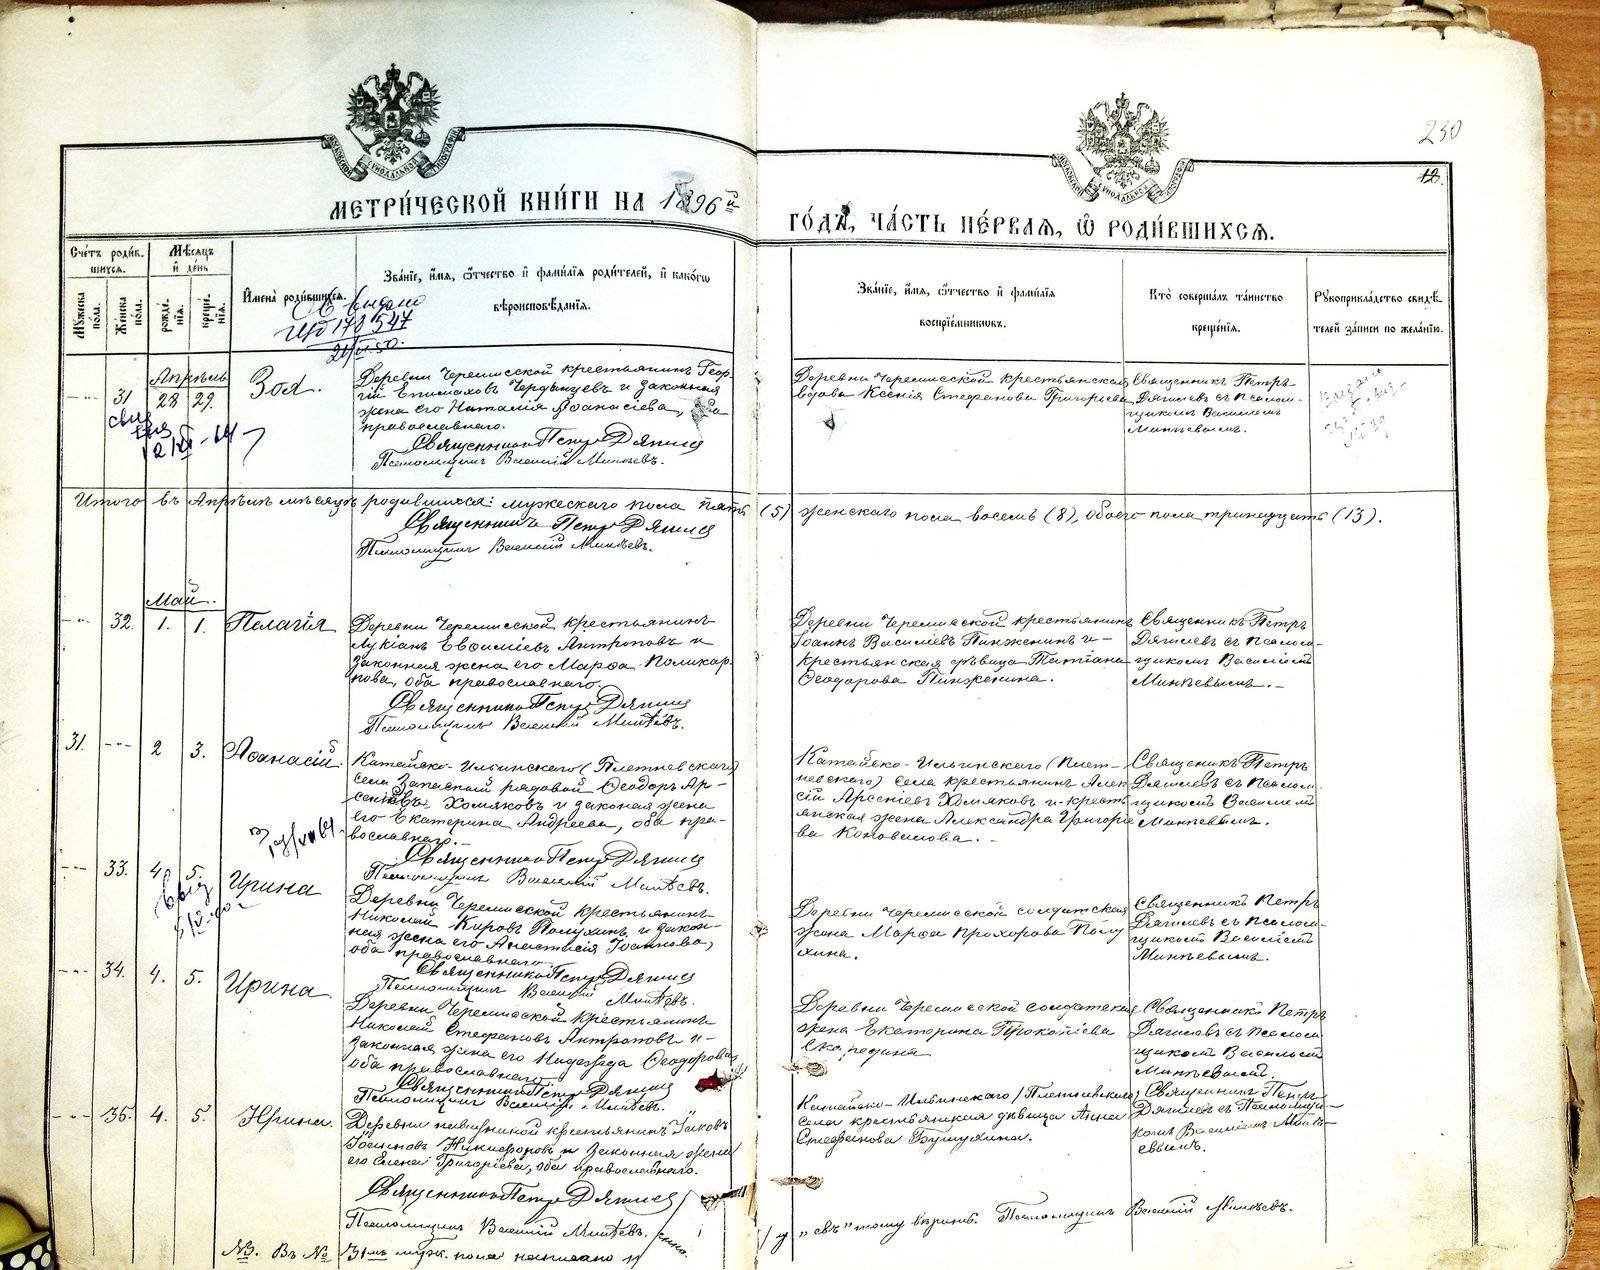 230
12.
МОСКОВСКОЙ СѴНОДАЛЬНОЙ ТИПОГРАФІИ
МОСКОВСКОЙ СѴНОДАЛЬНОЙ ТИПОГРАФІИ
МЕТРИ́ЧЕСКОЙ КНИ́ГИ НА 1896й
ГО́ДА, ЧА́СТЬ ПЕ́РВАЯ, Ѽ РОДИ́ВШИХСѦ.
Сче́тъ роди́в-
шихся.
Мѣ́сяцъ
и҆ де́нь
Му́жеска по́ла.
Же́нска по́ла.
рожде́нїя.
креще́нїя.
И҆мена̀ роди́вшихся.
Зва́нїе, и҆́мя, ѻ҆́тчество и҆ фами́лїя роди́телей, и҆ како́гѡ
вѣроисповѣ́данїя.
Зва́нїе, и҆́мя, ѻ҆́тчество и҆ фами́лїя
воспрїе́мникѡвъ.
Кто̀ соверша́лъ та́инство
креще́нїя.
Рукоприкла́дство свидѣ́-
телей за́писи по жела́нїю.
Св выдано
178547
Апрѣль
31 28 29. Зоя.
Деревни Черемисской крестьянинъ Геор-
гій Епимаховъ Чердынцевъ и законная
жена его Наталія Аѳанасіева, оба
православнаго.
Священникъ Петръ Дягилев
Псаломщикъ Василій Минѣевъ.
Деревни Черемисской крестьянская
вдова Ксенія Стефанова Григорьева
Священникъ Петръ
Дягилевъ съ псалом-
щикомъ Василіемъ
Минѣевымъ.
Итого въ Апрѣлѣ мѣсяцѣ родившихся: мужескаго пола пять (5) женскаго пола восемь (8), обоего пола тринадцать (13).
Священникъ Петръ Дягилев
Псаломщикъ Василій Минѣевъ.
Май.
32. 1. 1. Пелагія
Деревни Черемисской крестьянинъ
Лукіанъ Евѳиміевъ Антроповъ и
законная жена его Марѳа Поликар-
пова, оба православнаго.
Священникъ Петръ Дягилев
Псаломщикъ Василій Минѣевъ.
Деревни Черемисской крестьянинъ
Іоаннъ Василіевъ Пинженинъ и-
крестьянская дѣвица Татіана
Ѳеодорова Пинженина.
Священникъ Петръ
Дягилевъ съ псалом-
щикомъ Василіемъ
Минѣевымъ.
31. 2 3. Аѳанасій.
Катайско-Ильинскаго (Плетневскаго)
села Запасный рядовой Ѳеодоръ Ар-
сеніевъ Хомяковъ и законная жена
его Екатерина Андреева, оба пра-
вославнаго.
Священникъ Петръ Дягилев
Псаломщикъ Василій Минѣевъ.
Катайско-Ильинскаго (Плет-
невскаго) села крестьянинъ Алек-
сій Арсеніевъ Хомяковъ и кресть-
янская жена Александра Григорie-
ва Коновалова.
Священникъ Петръ
Дягилевъ съ псалом-
щикомъ Василіемъ
Минѣевымъ.
33. 4. 5. Ирина
Деревни Черемисской крестьянинъ
Николай Кировъ Полухинъ и закон-
ная жена его Анастасія Іоаннова,
оба православнаго.
Священникъ Петръ Дягилев
Псаломщикъ Василій Минѣевъ.
Деревни Черемисской солдатская
жена Марѳа Прохорова Полу-
хина.
Священникъ Петръ
Дягилевъ съ псалом-
щикомъ Василіемъ
Минѣевымъ.
34. 4. 5. Ирина.
Деревни Черемисской крестьянинъ
Николай Стефановъ Антроповъ и-
законная жена его Надежда Ѳеодорова
оба православнаго
Священникъ Петръ Дягилев
Псаломщикъ Василій Минѣевъ.
Деревни Черемисской солдатская
жена Екатерина Прокопіева
Священникъ Петръ
Дягилевъ съ псалом-
щикомъ Василіемъ
Минѣевымъ.
35. 4. 5. Ирина.
Деревни крестьянинъ Іаковъ
Іоанновъ Никифоровъ и законная жена
его Елена Григоріева, оба православнаго.
Священникъ Петръ Дягилев
Псаломщикъ Василій Минѣевъ.
Катайско-Ильинскаго (Плетневскаго)
села крестьянская дѣвица Анна
Стефанова Бушухина.
Священникъ Петръ
Дягилевъ съ Псаломщи-
комъ Василіемъ Минѣ-
евымъ.
№3. Въ № 31мъ муж. пола написано
„евъ" тому вѣрить. Псаломщикъ Василій Минѣевъ.
so
so
so